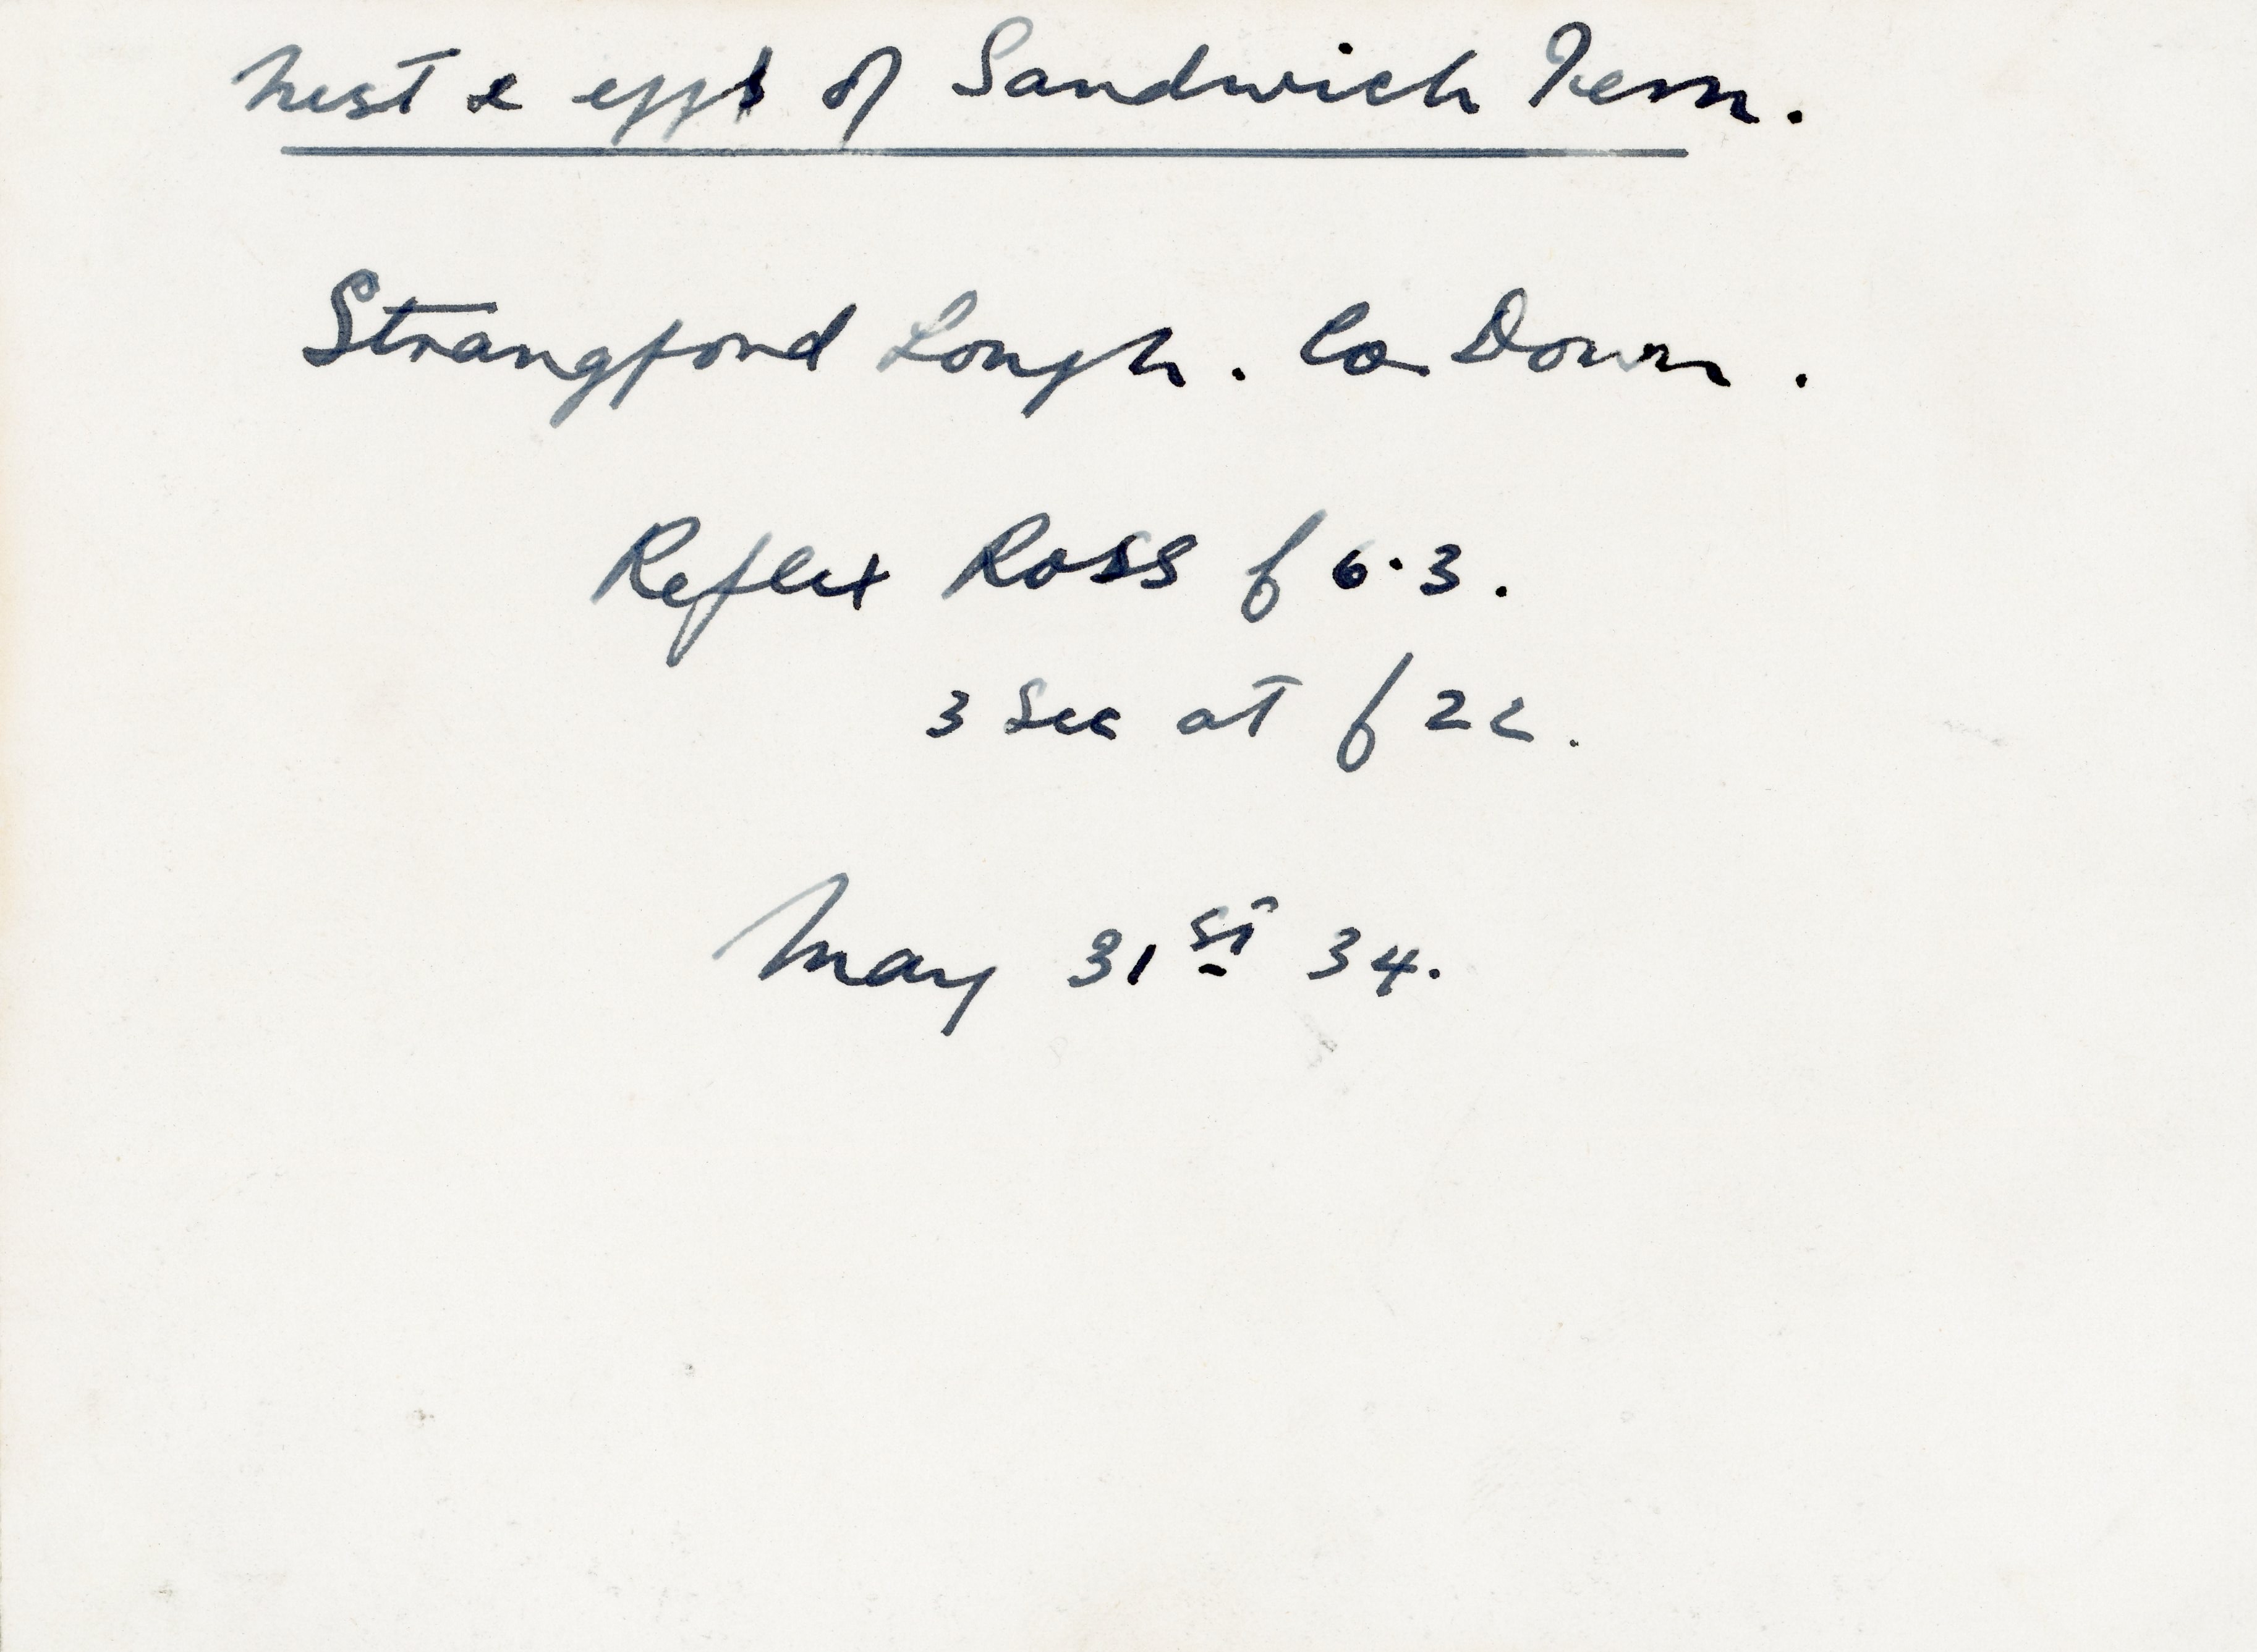 Nest & eggs of Sandwich Tern.
Strangford Lough. Co Down.
Reflex Ross f 6.3.
3 Sec at f 22.
May 31st 34.